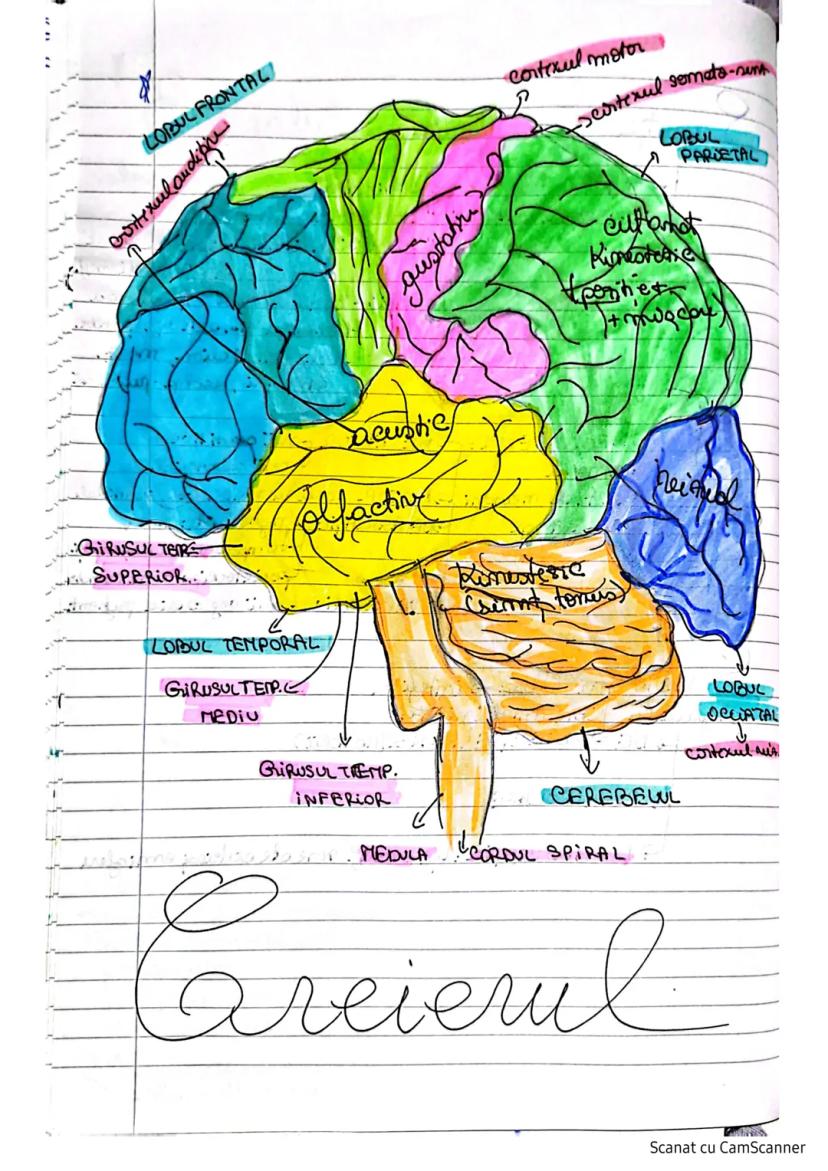 cortexul motor
cortexul somato-
LOBUL FRONTAL
cortexul auditiv
LOBUL
PARIETAL
gustativ
cutanat
Kinestezic
(poziție +
+ mișcare)
acustic
olfactiv
vizual
GIRUSUL TEMP.
SUPERIOR
Kinestezic
(simț tonus)
LOBUL TEMPORAL
GIRUSUL TEMP.
MEDIU
LOBUL
OCCIPITAL
cortexul
GIRUSUL TEMP.
INFERIOR
CEREBELUL
MEDULA
CORDUL SPIRAL
Creierul
Scanat cu CamScanner